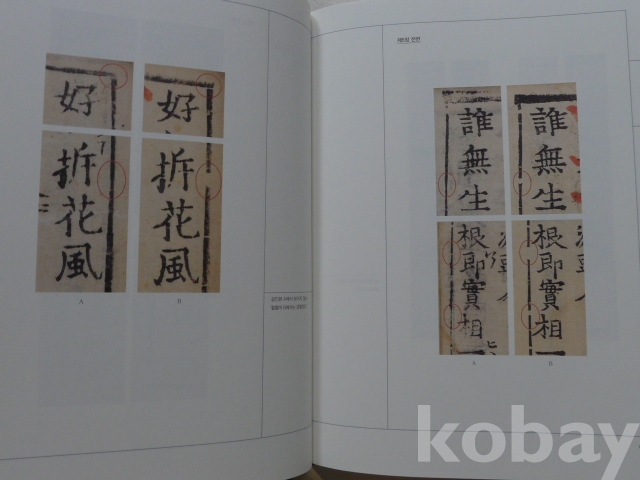 好
好
折花風
折花風
A
B
誰無生
誰無生
根即實相
根即實相
A
B
kobay